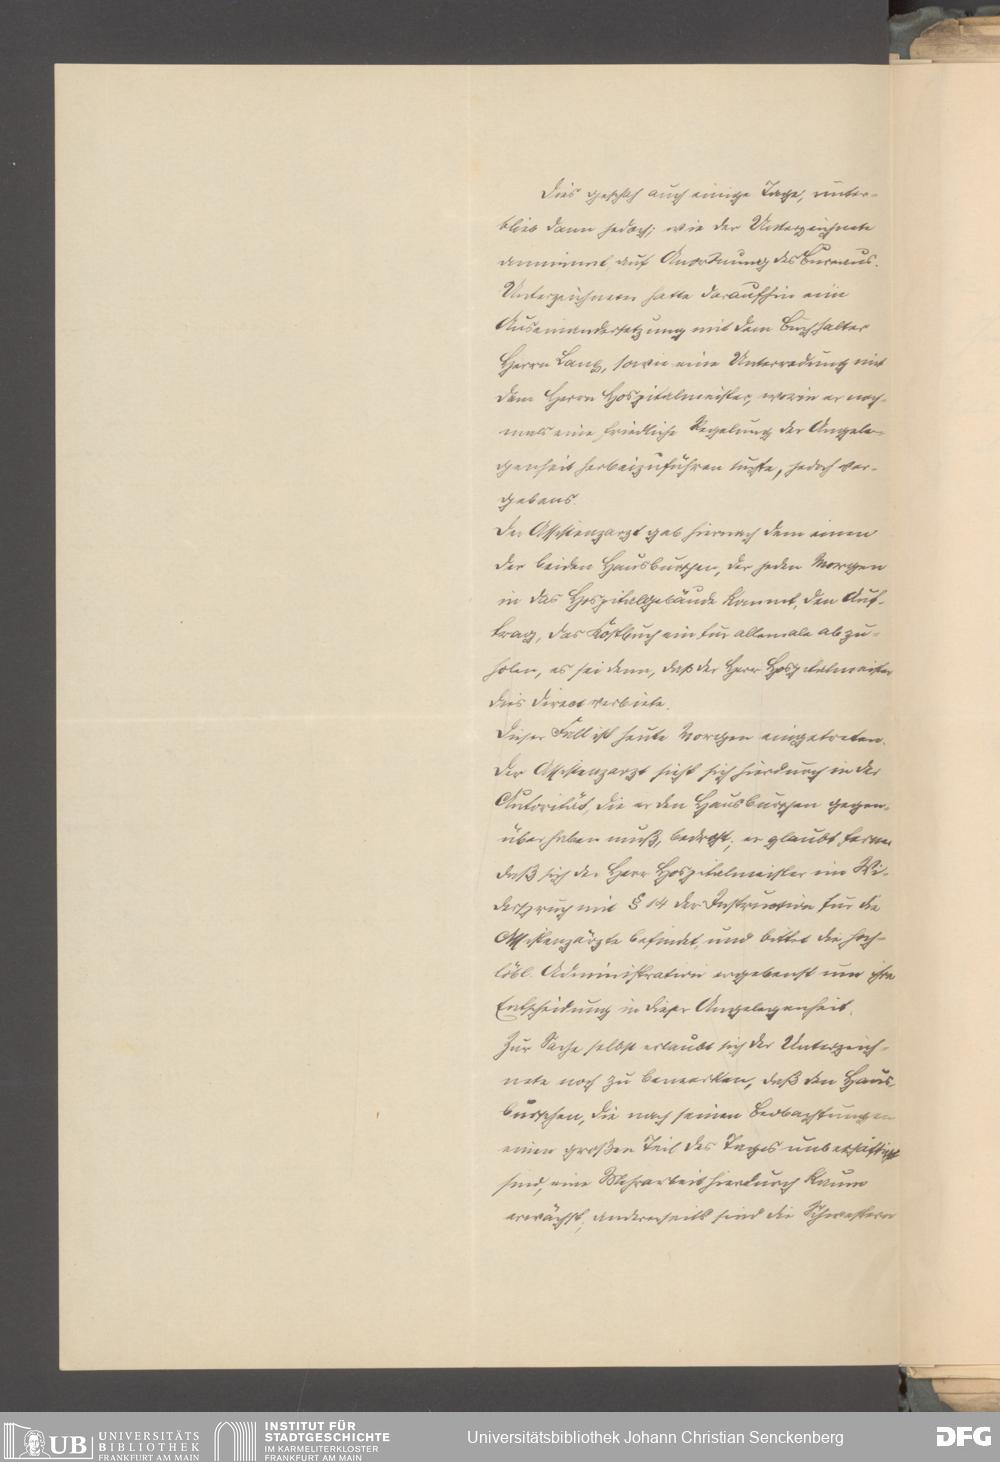 Dies geschah auch einige Tage, unter-
blieb dann jedoch; wie der Unterzeichnete
annimmt, auf Anordnung des Bureaus.
Unterzeichneter hatte daraufhin eine
Auseinandersetzung mit dem Buchhalter
Herrn Lang, sowie eine Unterredung mit
dem Herrn Hospitalmeister, worin er noch-
mals eine friedliche Regelung der Angele-
genheit herbeizuführen suchte, jedoch ver-
gebens.
Der Assistenzarzt gab hiernach dem einen
der beiden Hausburschen, der jeden Morgen
in das Hospitalgebäude kommt, den Auf-
trag, das Kostbuch ein für allemale abzu-
holen, es sei denn, daß der Herr Hospitalmeister
dies direct verbiete.
Dieser Fall ist heute Morgen eingetreten.
Der Assistenzarzt sieht sich hierdurch in der
Autorität, die er den Hausburschen gegen-
über haben muß, bedroht; er glaubt ferner
daß sich der Herr Hospitalmeister im Wi-
derspruch mit § 14 der Instruction für die
Assistenzärzte befindet, und bittet die hoch-
löbl. Administration ergebenst um ihre
Entscheidung in dieser Angelegenheit.
Zur Sache selbst erlaubt sich der Unterzeich-
nete noch zu bemerken, daß den Haus-
burschen, die nach seinen Beobachtungen
einen großen Teil des Tages unbeschäftigt
sind, eine Mehrarbeit hierdurch kaum
erwächst, andererseits sind die Schwestern
UB UNIVERSITÄTS
BIBLIOTHEK
FRANKFURT AM MAIN
INSTITUT FÜR
STADTGESCHICHTE
IM KARMELITERKLOSTER
FRANKFURT AM MAIN
Universitätsbibliothek Johann Christian Senckenberg
DFG